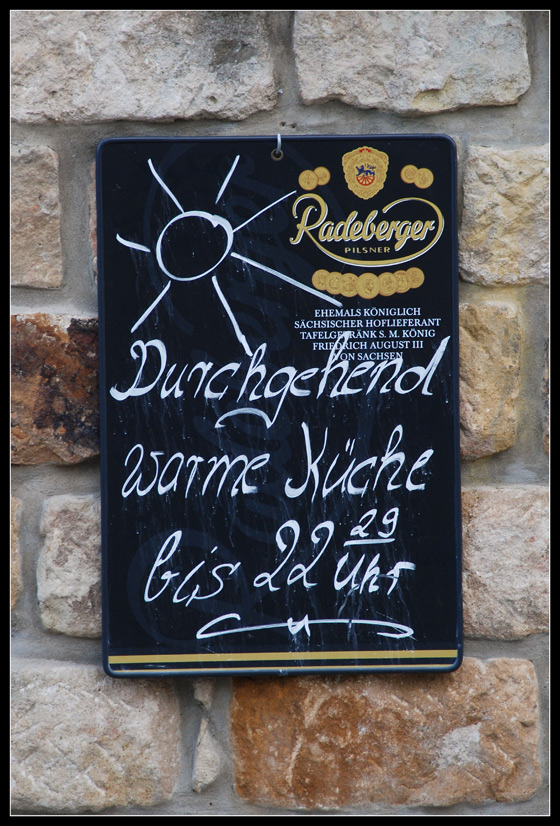 Radeberger
PILSNER
EHEMALS KÖNIGLICH
SÄCHSISCHER HOFLIEFERANT
TAFELGETRÄNK S. M. KÖNIG
FRIEDRICH AUGUST III
VON SACHSEN
Durchgehend
warme Küche
bis 22 29
Uhr